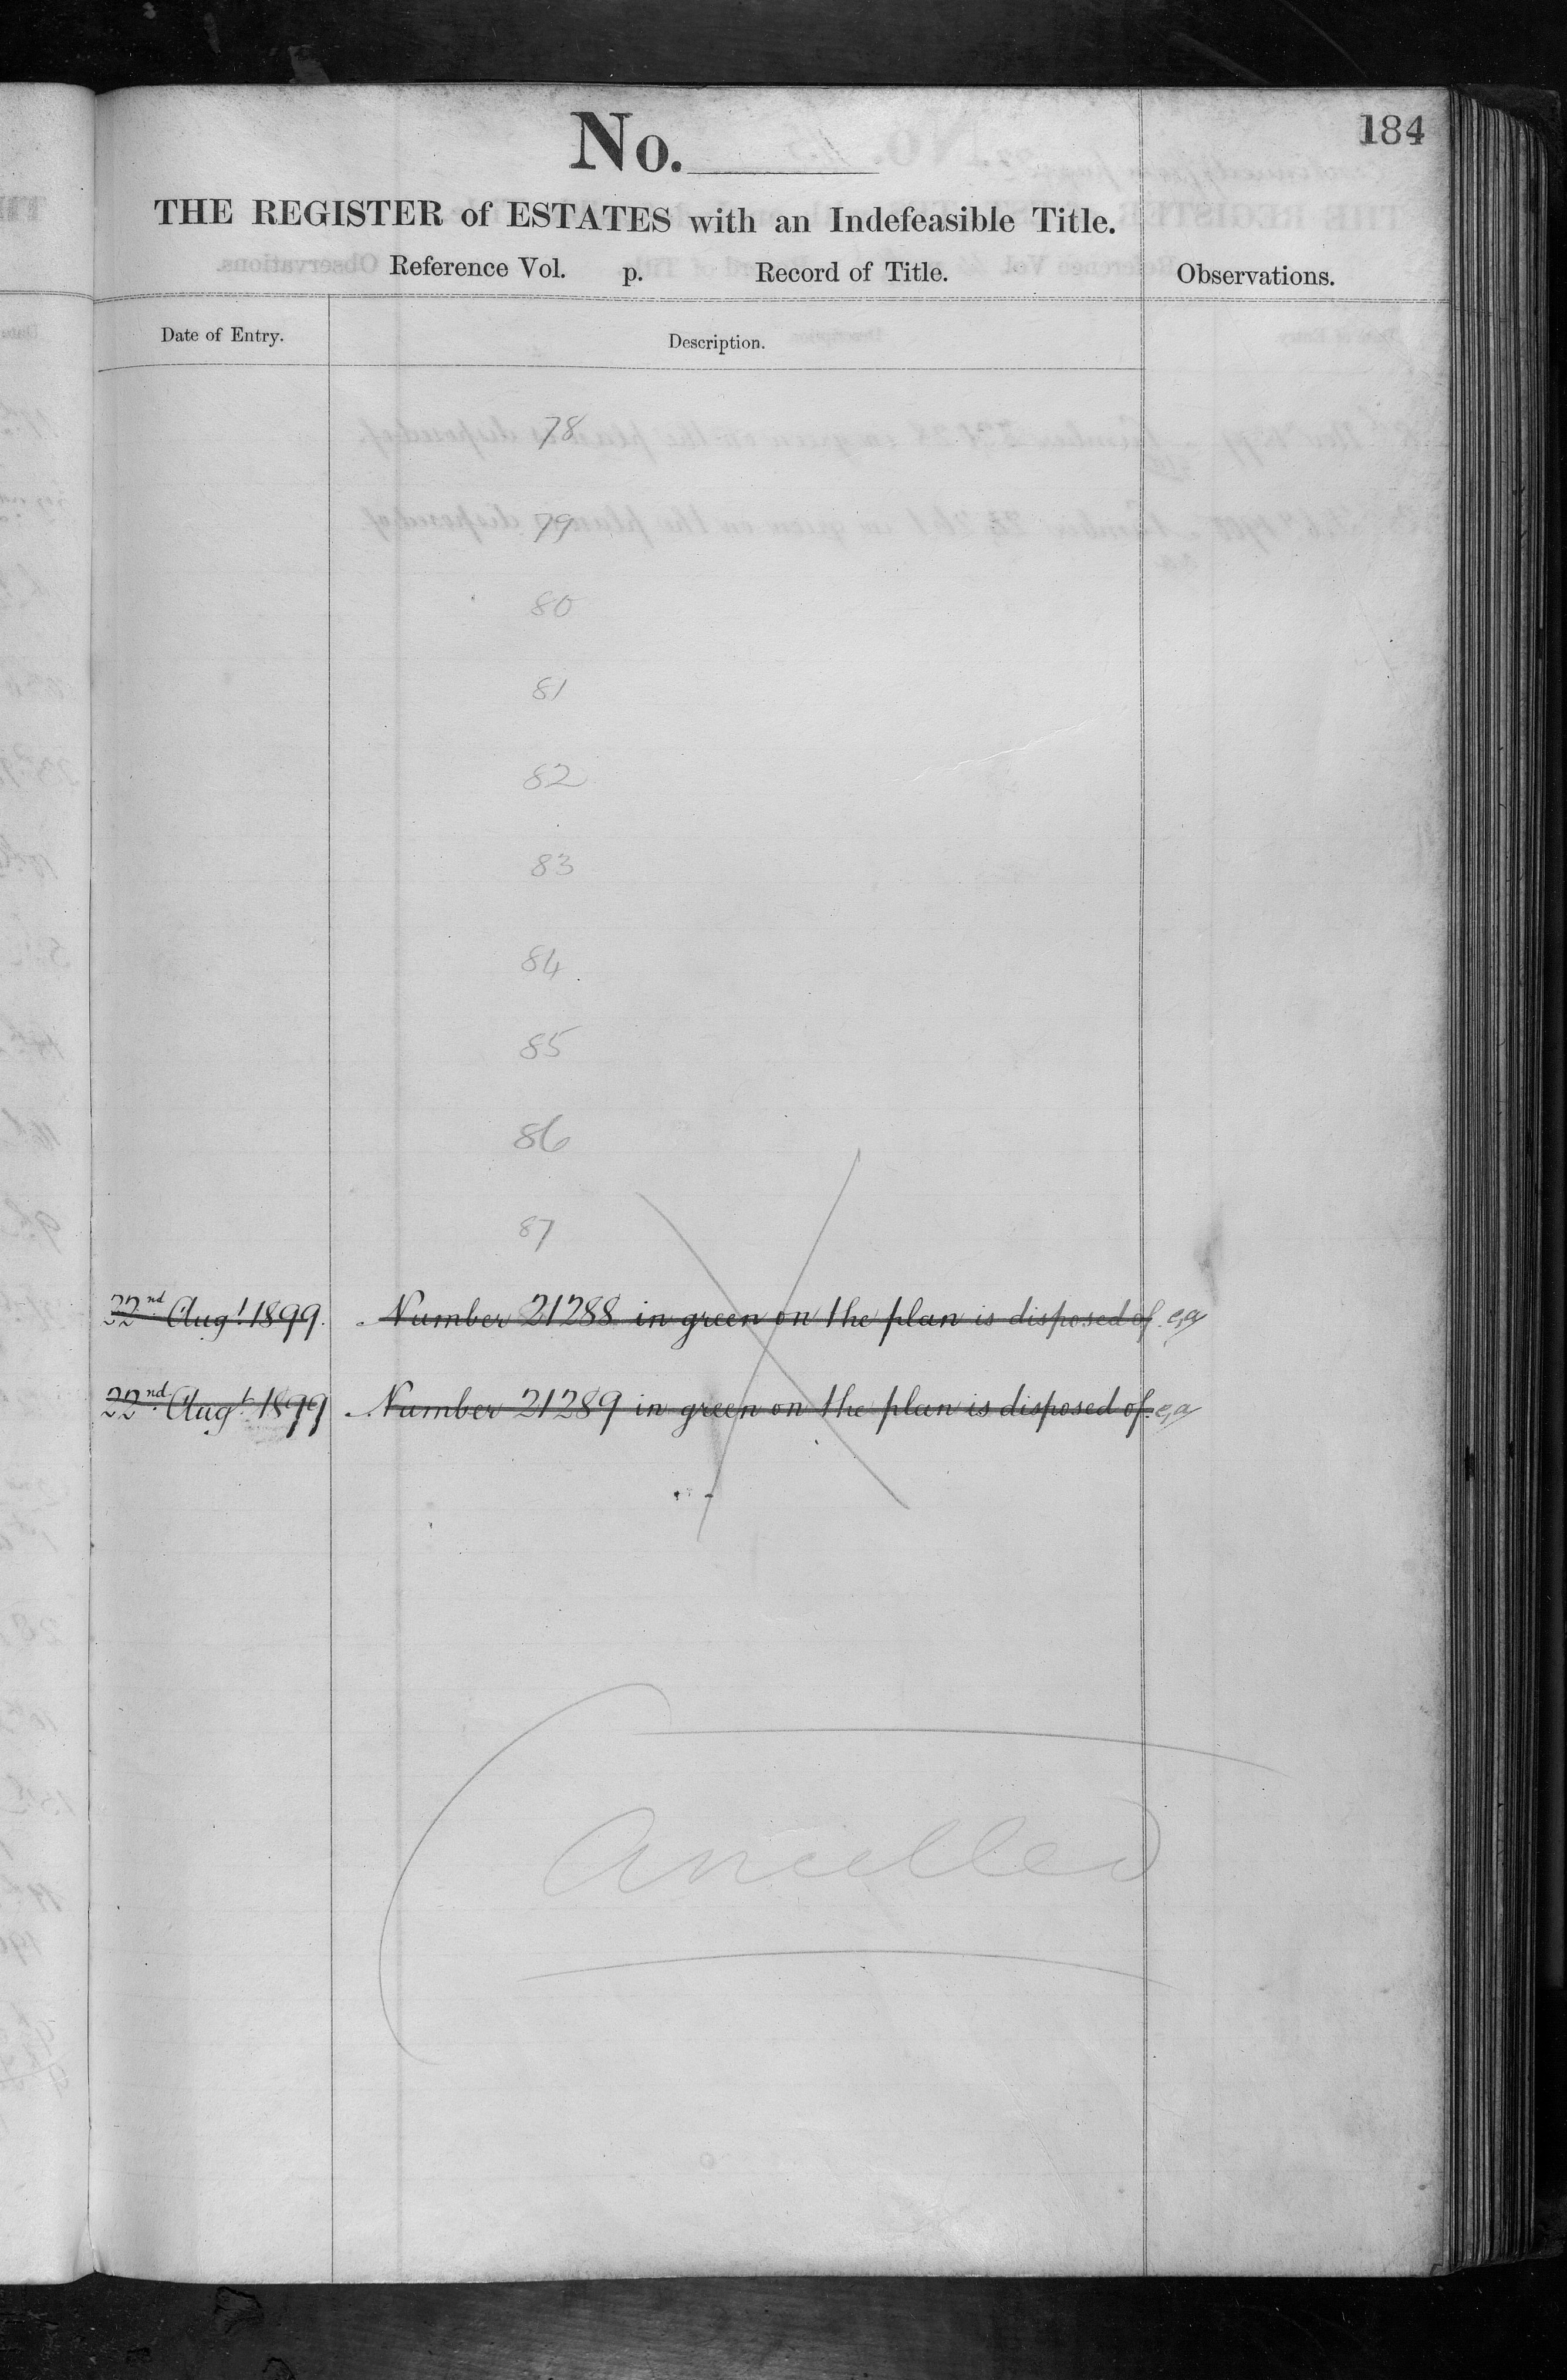 184
No.
THE REGISTER of ESTATES with an Indefeasible Title.
Reference Vol. p. Record of Title. Observations.
Date of Entry. Description.
78
79
80
81
82
83
84
85
86
87
22nd Augt 1899. Number 21288 in green on the plan is disposed of.
22nd Augt 1899 Number 21289 in green on the plan is disposed of.
Cancelled